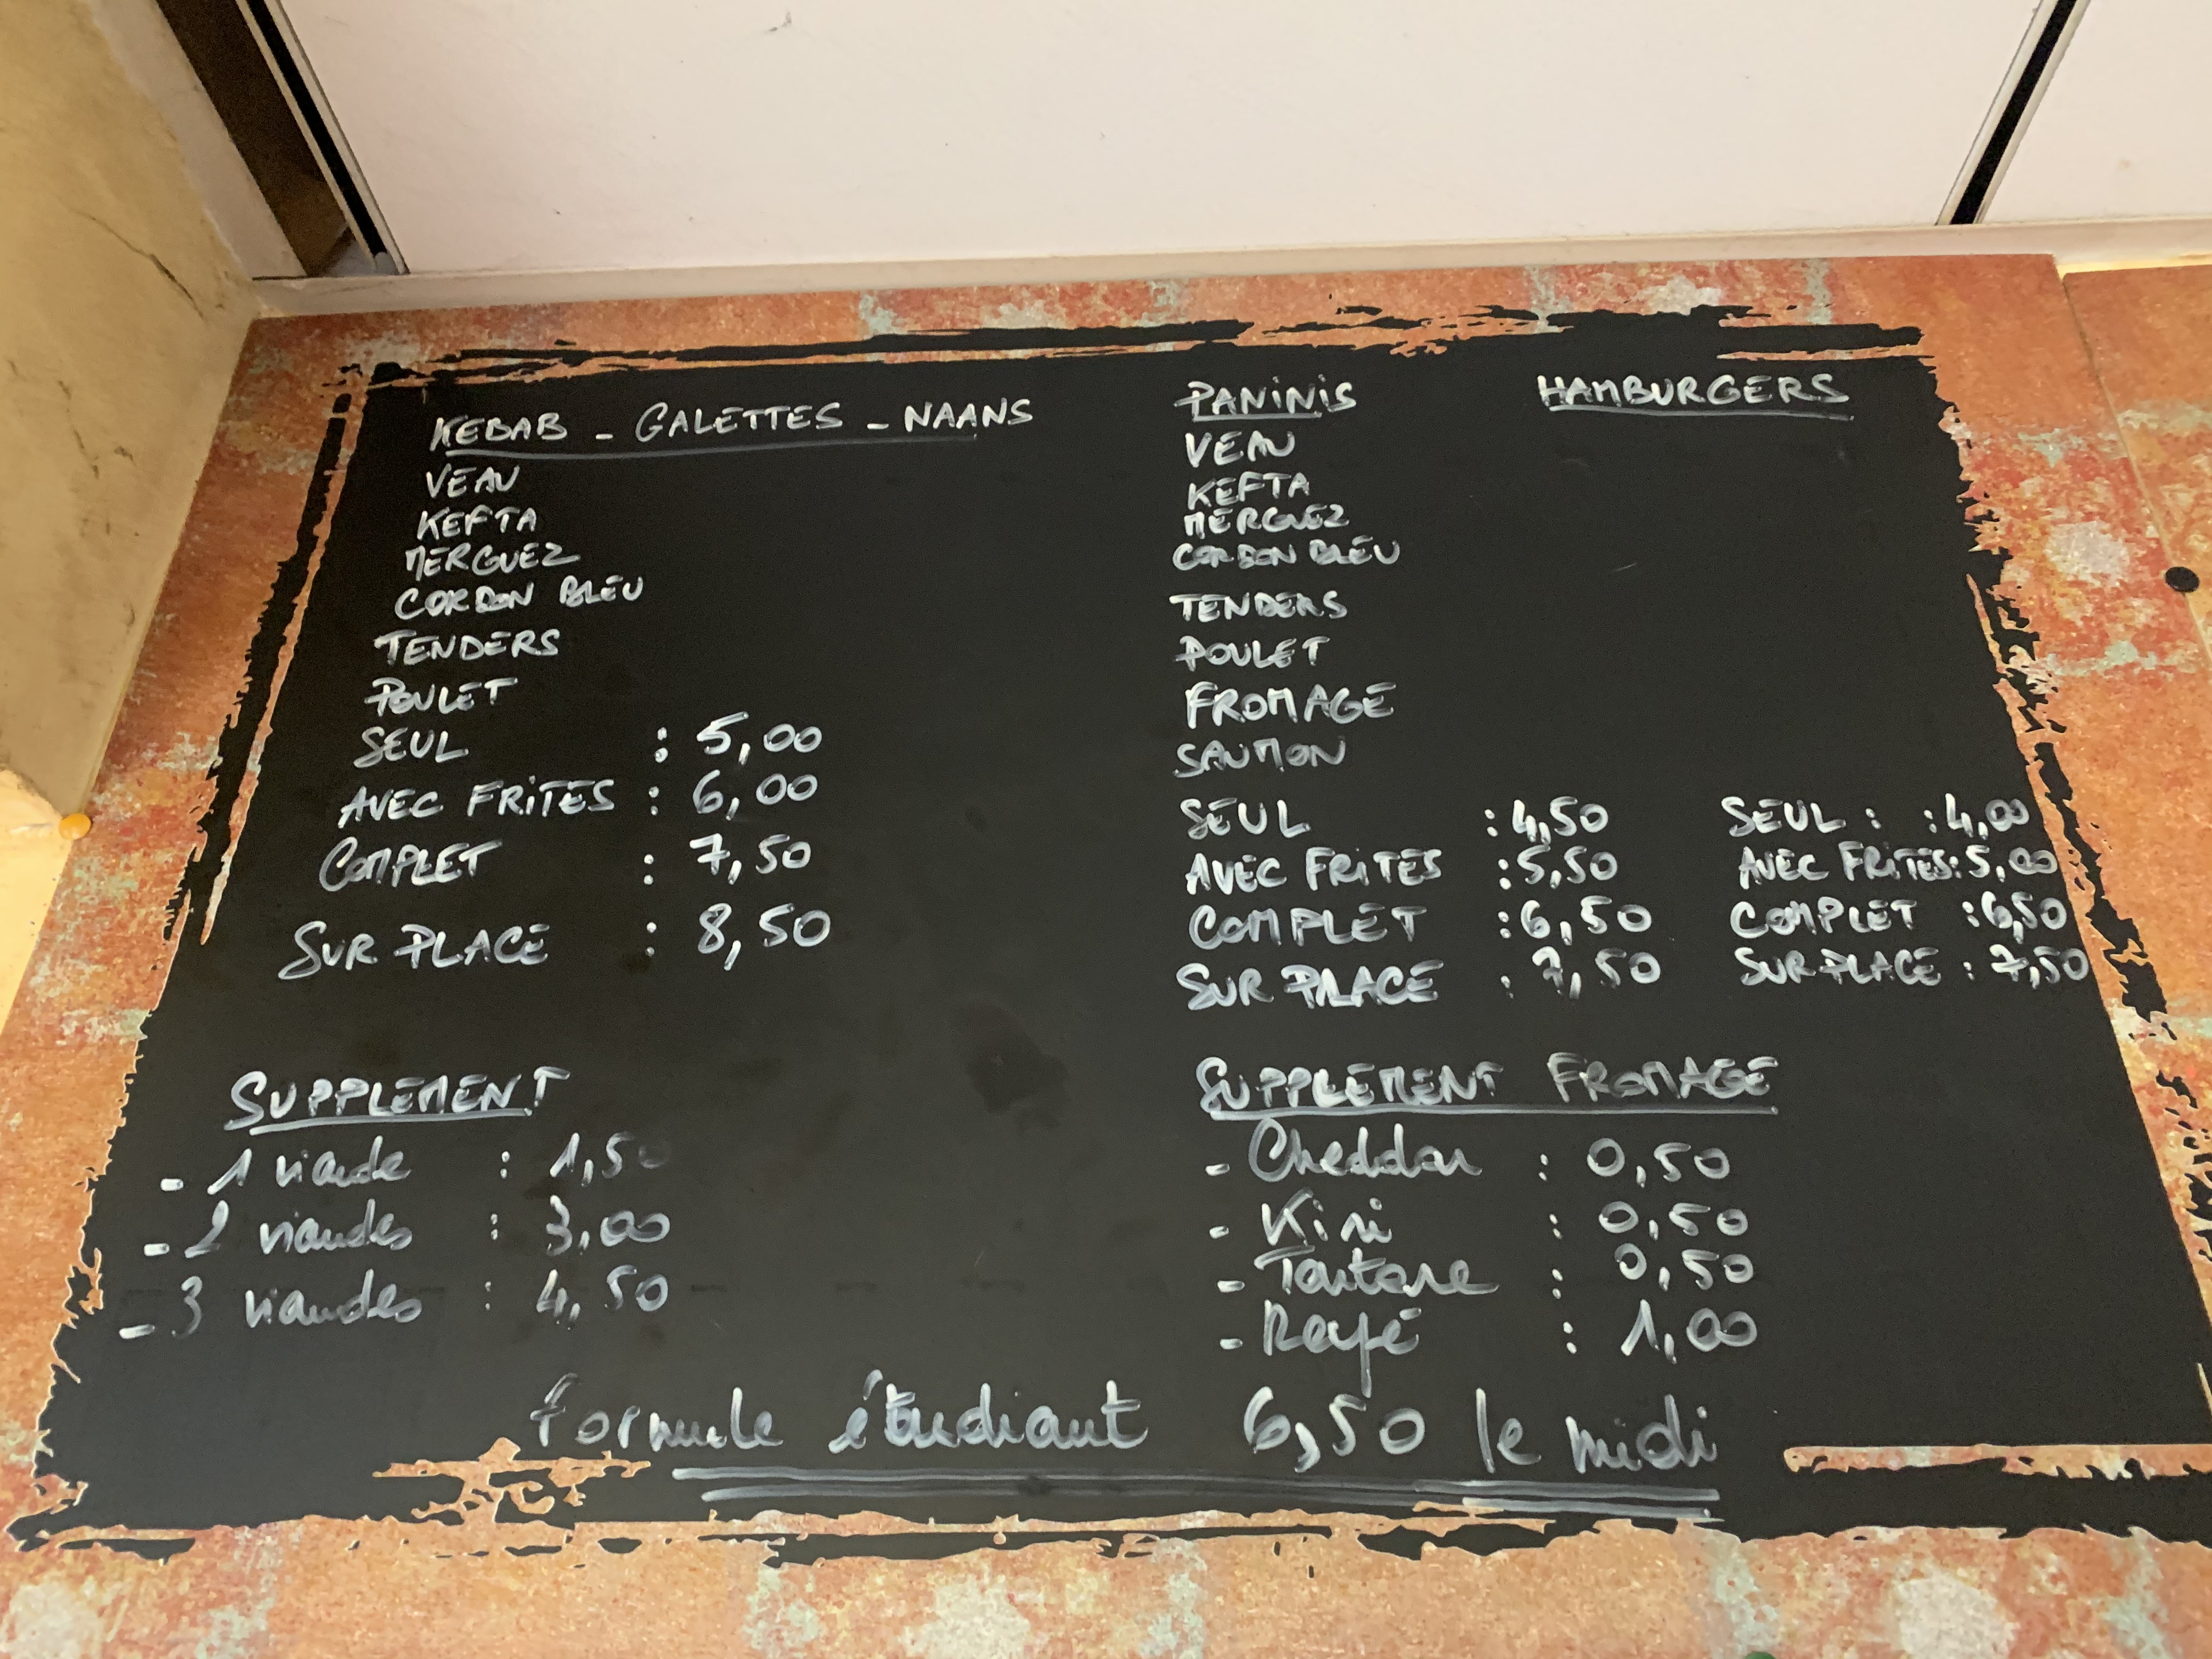 KEBAB - GALETTES - NAANS
VEAU
KEFTA
MERGUEZ
CORDON BLEU
TENDERS
POULET
SEUL : 5,00
AVEC FRITES : 6,00
COMPLET : 7,50
SUR PLACE : 8,50
PANINIS
VEAU
KEFTA
MERGUEZ
CORDON BLEU
TENDERS
POULET
FROMAGE
SAUMON
SEUL : 4,50
AVEC FRITES : 5,50
COMPLET : 6,50
SUR PLACE : 7,50
HAMBURGERS
SEUL : : 4,00
AVEC FRITES : 5,00
COMPLET : 6,50
SUR PLACE : 7,50
SUPPLEMENT
- 1 viande : 1,50
- 2 viandes : 3,00
- 3 viandes : 4,50
SUPPLEMENT FROMAGE
- Cheddar : 0,50
- Kiri : 0,50
- Tartare : 0,50
- Rapé : 1,00
formule étudiant 6,50 le midi